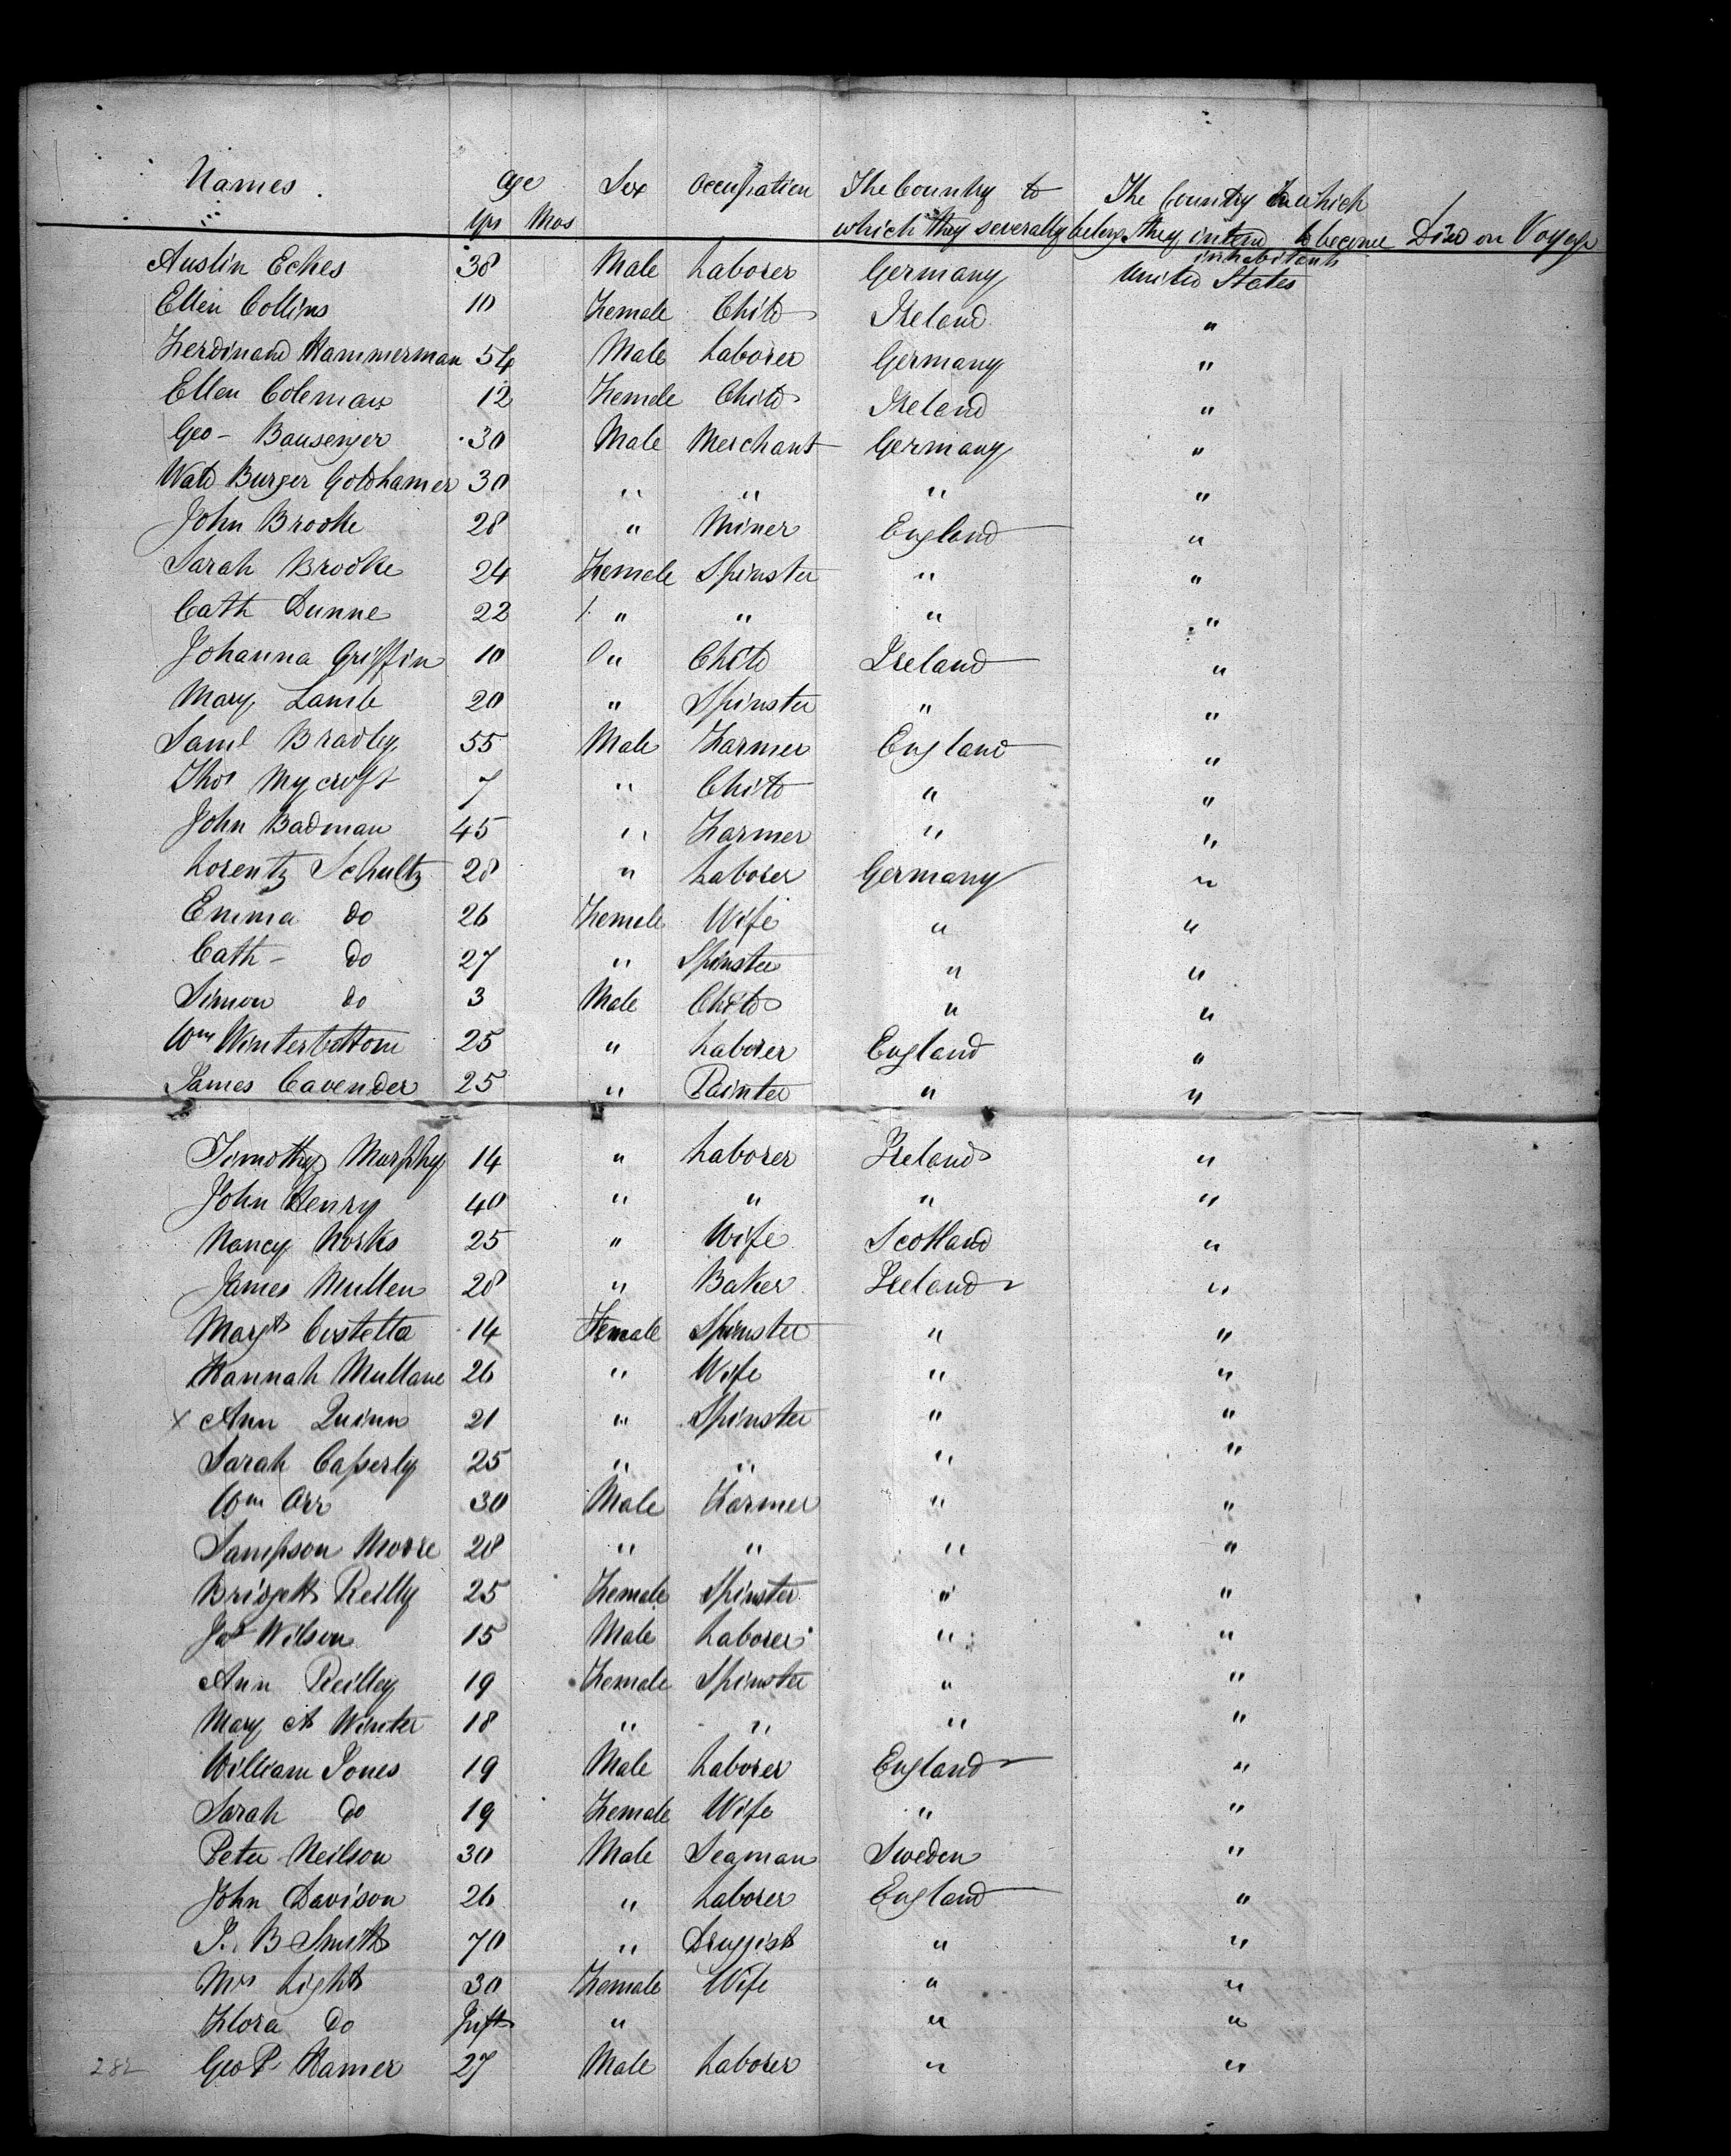 Names . Age Sex Occupation The Country to The Country in which
Yrs Mos which they severally belong they intend to become Died on Voyage
inhabitants
Austin Eches 38 Male Laborer Germany United States
Ellen Collins 10 Female Child Ireland "
Ferdinand Hammerman 54 Male Laborer Germany "
Ellen Coleman 12 Female Child Ireland "
Geo - Bausenger 30 Male Merchant Germany "
Wald Burger Goldhamer 30 " " " "
John Brooke 28 " Miner England "
Sarah Brooke 24 Female Spinster " "
Cath Dunne 22 " " " "
Johanna Griffin 10 " Child Ireland "
Mary Lamb 20 " Spinster " "
Saml Bradley 55 Male Farmer England "
Thos Mycroft 7 " Child " "
John Badman 45 " Farmer " "
Lorentz Schultz 28 " Laborer Germany "
Emma do 26 Female Wife " "
Cath - do 27 " Spinster " "
Simon do 3 Male Child " "
Wm Winterbottom 25 " Laborer England "
James Cavender 25 " Painter " "
Timothy Murphy 14 " Laborer Ireland "
John Henry 40 " " " "
Nancy Norks 25 " Wife Scotland "
James Mullen 28 " Baker Ireland "
Margt Costella 14 Female Spinster " "
Hannah Mullane 26 " Wife " "
x Ann Quinn 21 " Spinster " "
Sarah Casserly 25 " " " "
Wm Orr 30 Male Farmer " "
Sampson Moore 28 " " " "
Bridgett Reilly 25 Female Spinster " "
Jas Wilson 15 Male Laborer " "
Ann Reilley 19 Female Spinster " "
Mary A Winter 18 " " " "
William Jones 19 Male Laborer England "
Sarah do 19 Female Wife " "
Peter Neilson 30 Male Seaman Sweden "
John Davison 26 " Laborer England "
J. B Smith 70 " Druggist " "
Mrs Light 30 Female Wife " "
Flora do Inft " " "
282 Geo P Hamer 27 Male Laborer " "